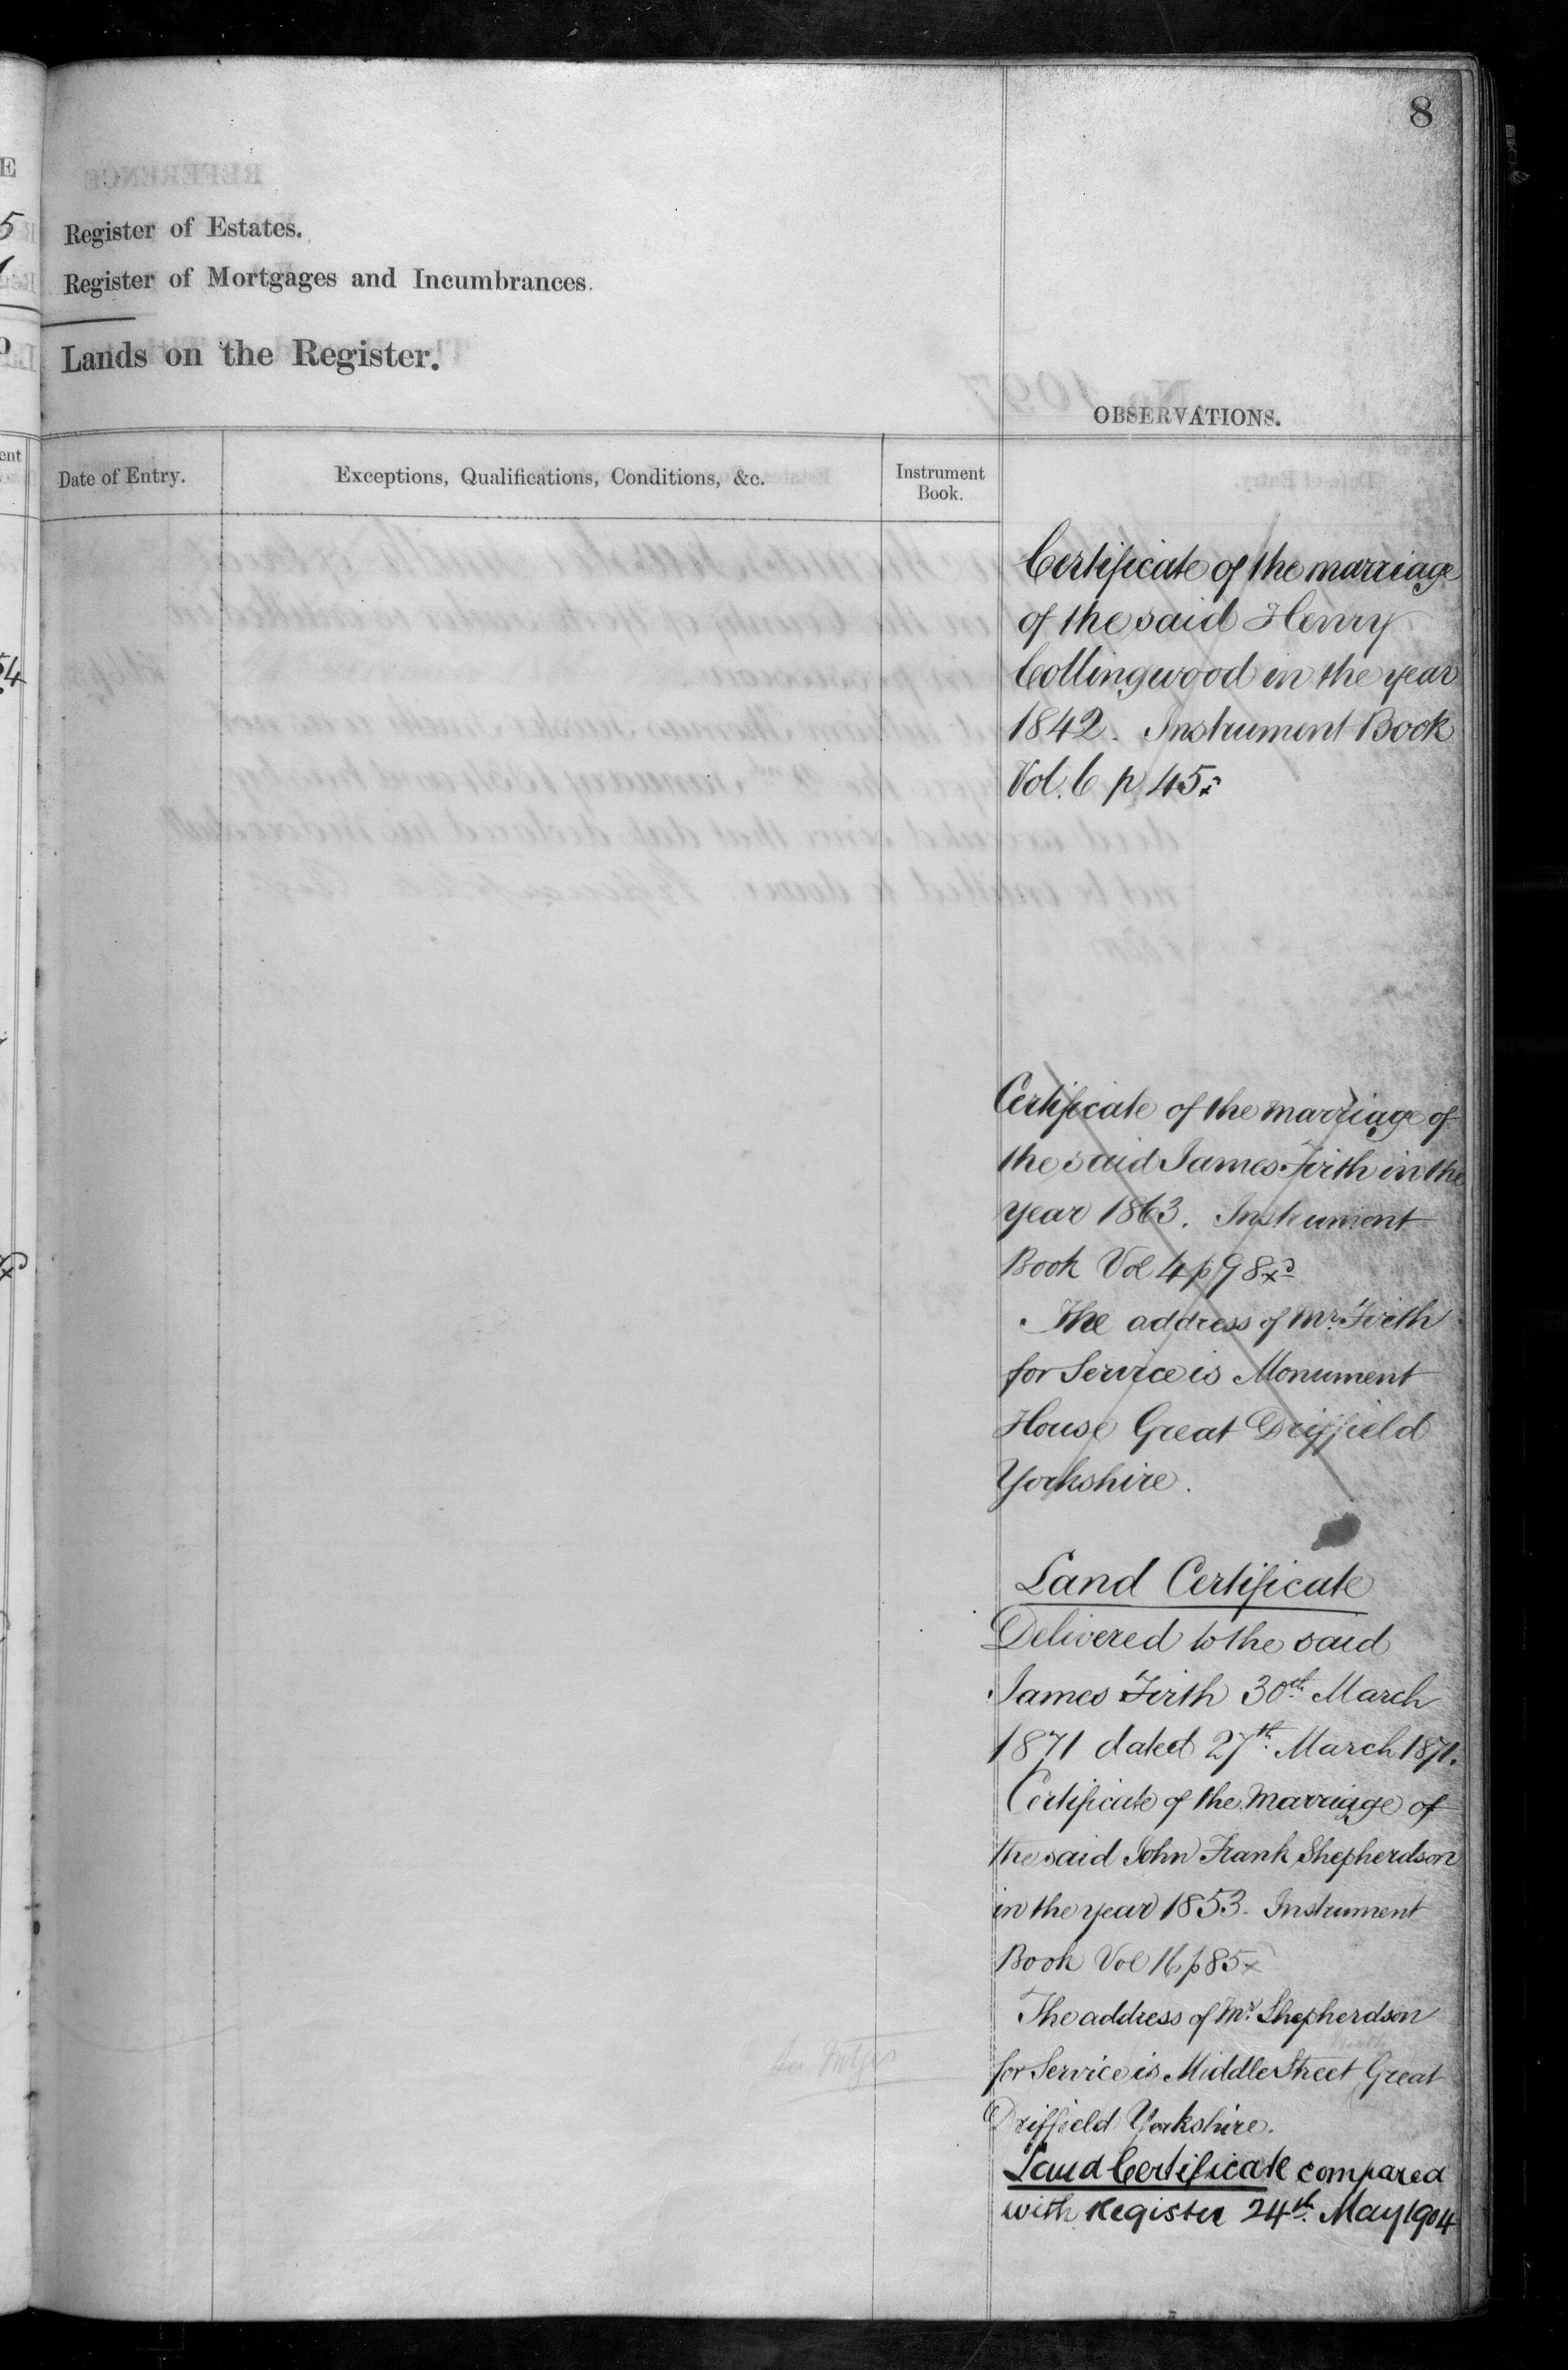 8
Register of Estates.
Register of Mortgages and Incumbrances.
Lands on the Register.
OBSERVATIONS.
Date of Entry.
Exceptions, Qualifications, Conditions, &c.
Instrument
Book.
Certificate of the marriage
of the said Henry
Collingwood in the year
1842. Instrument Book
Vol. 6 p 45
Certificate of the marriage of
the said James Firth in the
year 1863. Instrument
Book Vol 4 p 98
The address of Mr. Firth
for Service is Monument
House Great Driffield
Yorkshire.
Land Certificate
Delivered to the said
James Firth 30th March
1871 dated 27th March 1871.
Certificate of the marriage of
the said John Frank Shepherdson
in the year 1853. Instrument
Book Vol 16 p 85
The address of Mr. Shepherdson
for Service is Middle Street Great
Driffield Yorkshire.
Land Certificate compared
with Register 24th May 1904